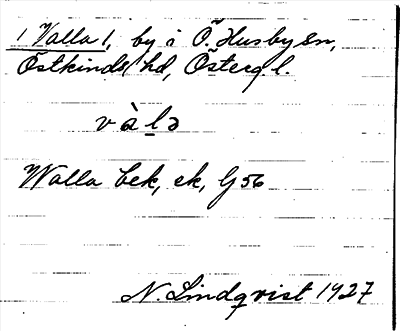 1 Valla 1, by i Ö. Husby sn,
Östkinds hd, Östergl.
v à l ə
Walla bek, ek, Gj 56
N. Lindqvist 1927